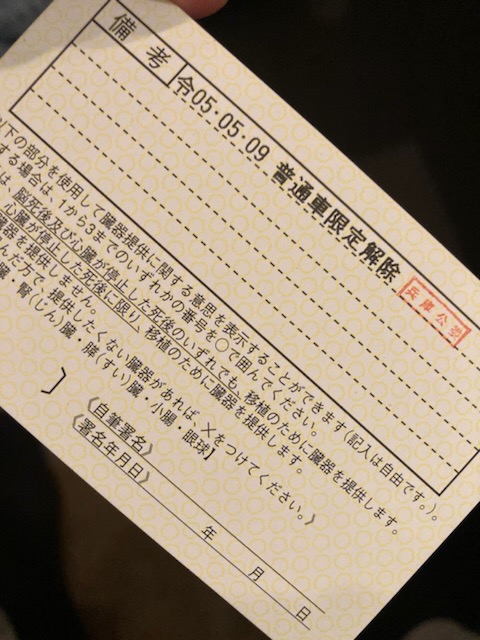 備考
令05.05.09 普通車限定解除
兵庫公委
以下の部分を使用して臓器提供に関する意思を表示することができます(記入は自由です。)。
する場合は、1から3までのいずれかの番号を○で囲んでください。
は、脳死後及び心臓が停止した死後のいずれでも、移植のために臓器を提供します。
心臓が停止した死後に限り、移植のために臓器を提供します。
臓器を提供しません。
んだ方で、提供したくない臓器があれば、×をつけてください。》
臓・腎(じん)臓・膵(すい)臓・小腸・眼球】
〕
《自筆署名》
《署名年月日》 年 月 日